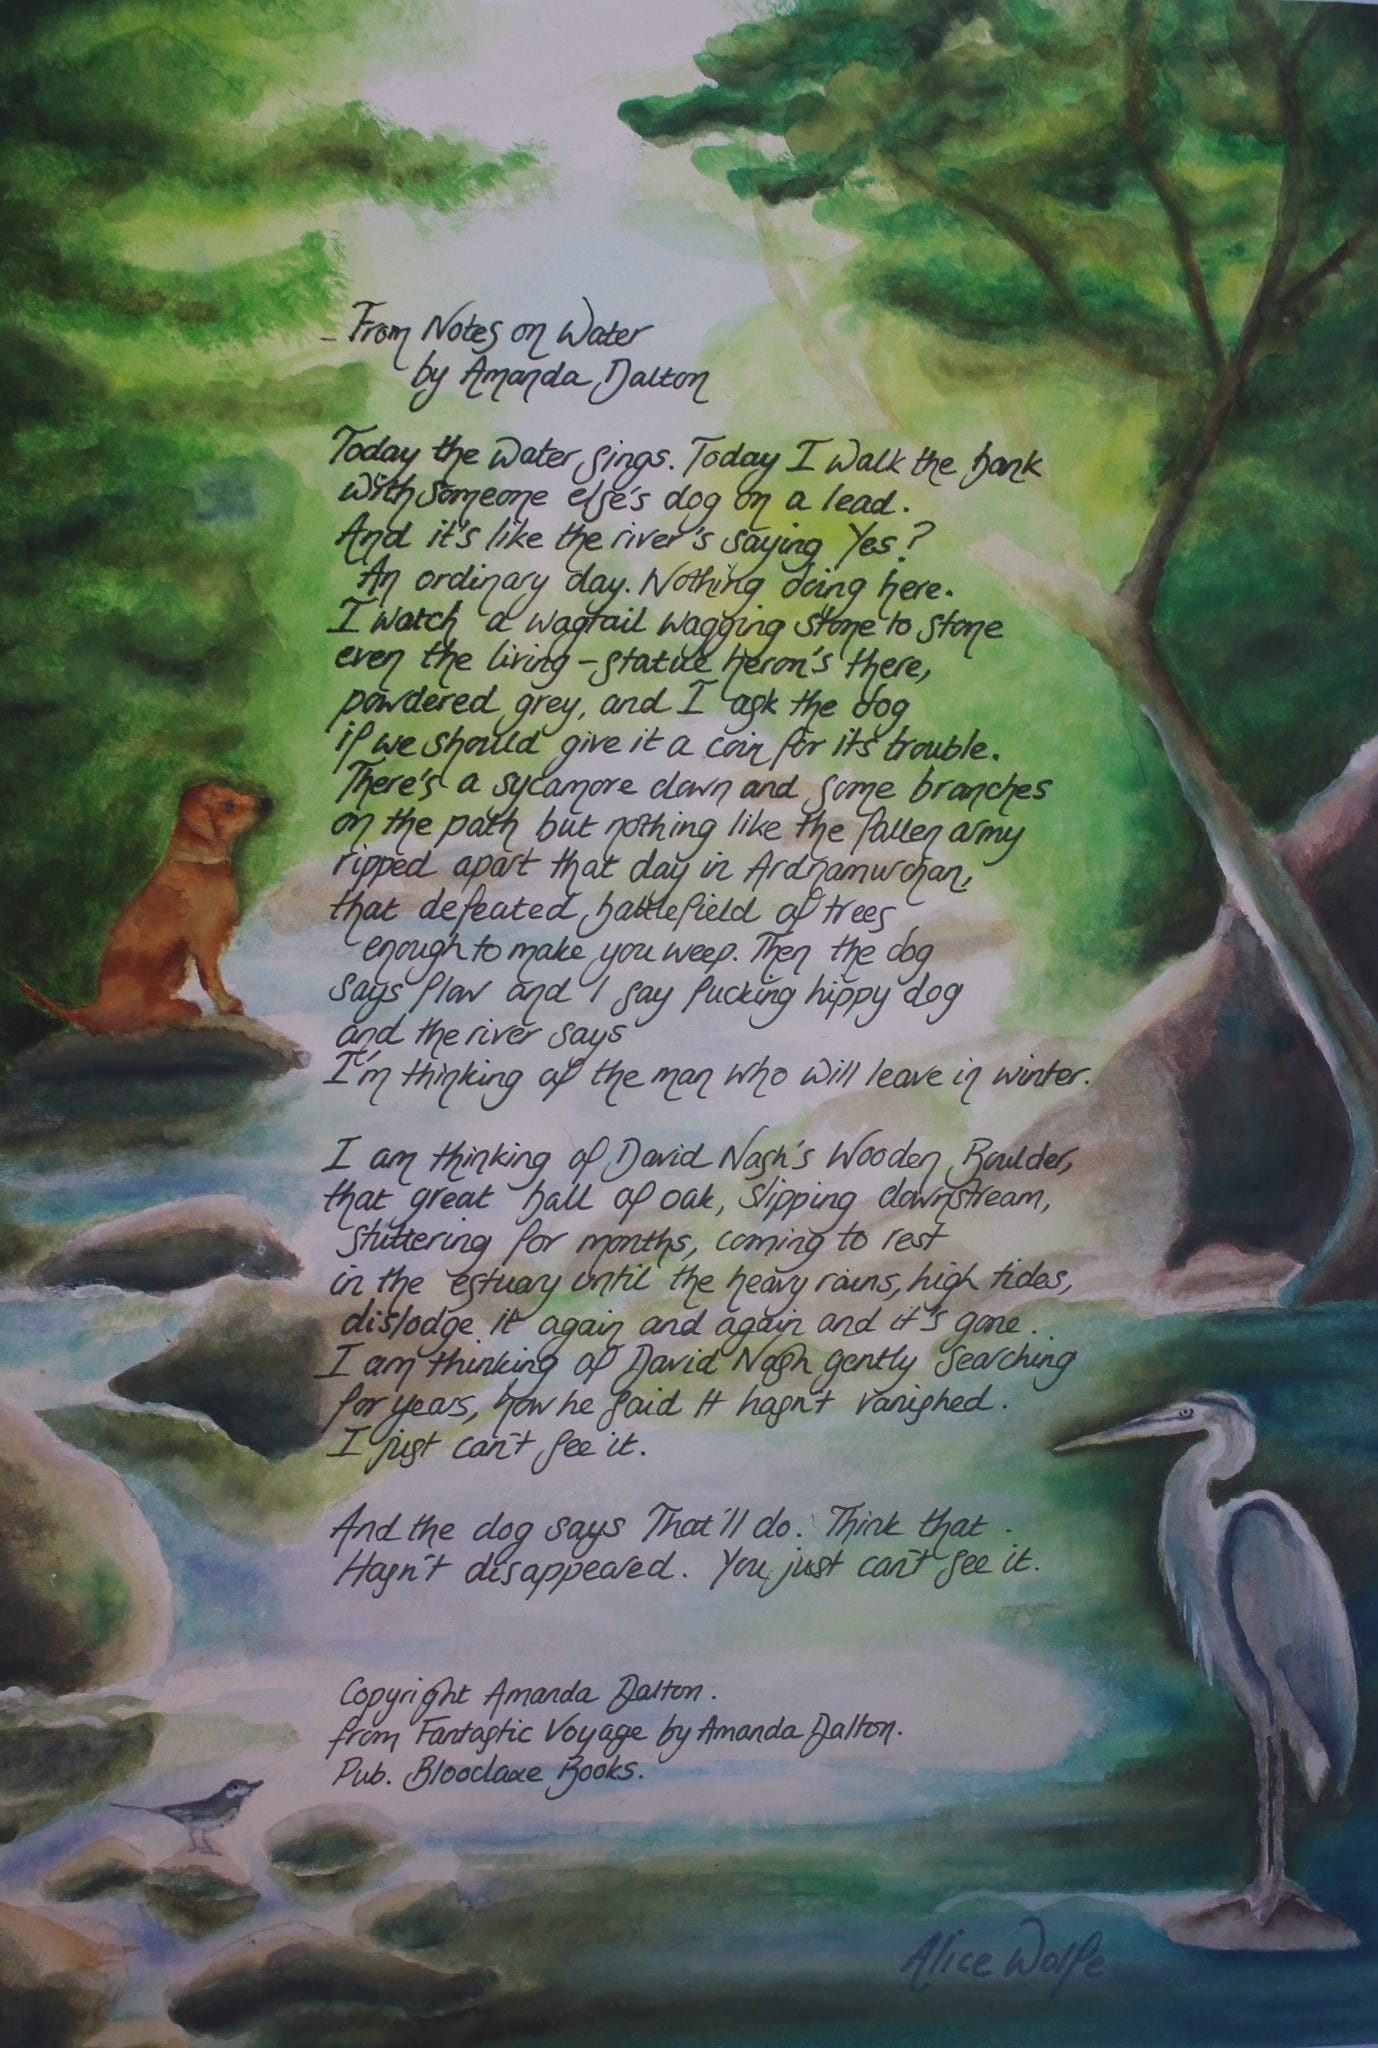 From Notes on Water
by Amanda Dalton
Today the water sings. Today I walk the bank
with someone else's dog on a lead.
And it's like the river's saying Yes?
An ordinary day. Nothing doing here.
I watch a wagtail wagging stone to stone
even the living-statue heron's there,
powdered grey, and I ask the dog
if we should give it a coin for its trouble.
There's a sycamore down and some branches
on the path but nothing like the fallen army
ripped apart that day in Ardnamurchan,
that defeated battlefield of trees
enough to make you weep. Then the dog
says flow and I say fucking hippy dog
and the river says
I'm thinking of the man who will leave in winter.
I am thinking of David Nash's Wooden Boulder,
that great ball of oak, slipping downstream,
stuttering for months, coming to rest
in the estuary until the heavy rains, high tides,
dislodge it again and again and it's gone..
I am thinking of David Nash gently searching
for years, how he said It hasn't vanished.
I just can't see it.
And the dog says That'll do. Think that.
Hasn't disappeared. You just can't see it.
Copyright Amanda Dalton.
from Fantastic Voyage by Amanda Dalton.
Pub. Bloodaxe Books.
Alice Wolfe